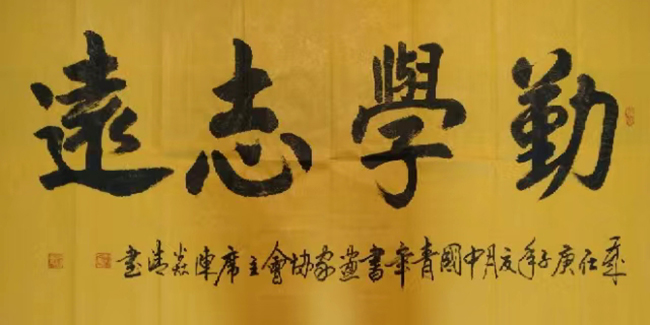 勤學志遠
歲在庚子年夏月中國青年書畫家協會主席陳焱清書